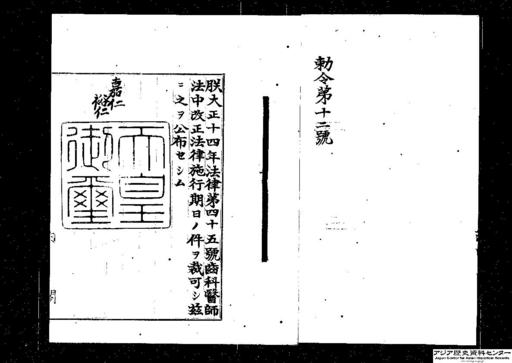 勅令第十二號
朕大正十四年法律第四十五號齒科醫師
法中改正法律施行期日ノ件ヲ裁可シ茲
ニ之ヲ公布セシム
嘉仁
裕仁
天皇
御璽
内閣
アジア歴史資料センター
Japan Center for Asian Historical Records